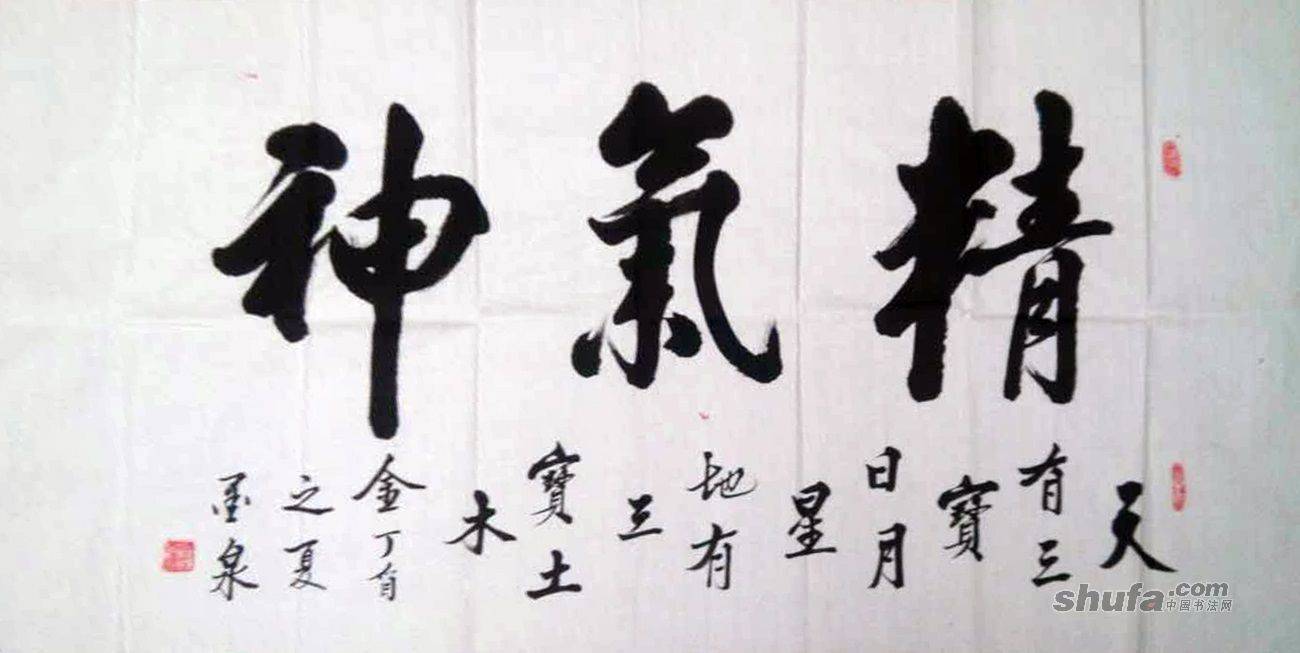 精氣神
天
有三
寶
日月
星
地有
三
寶土
木
金丁酉
之夏
墨泉
shufa.com
中国书法网